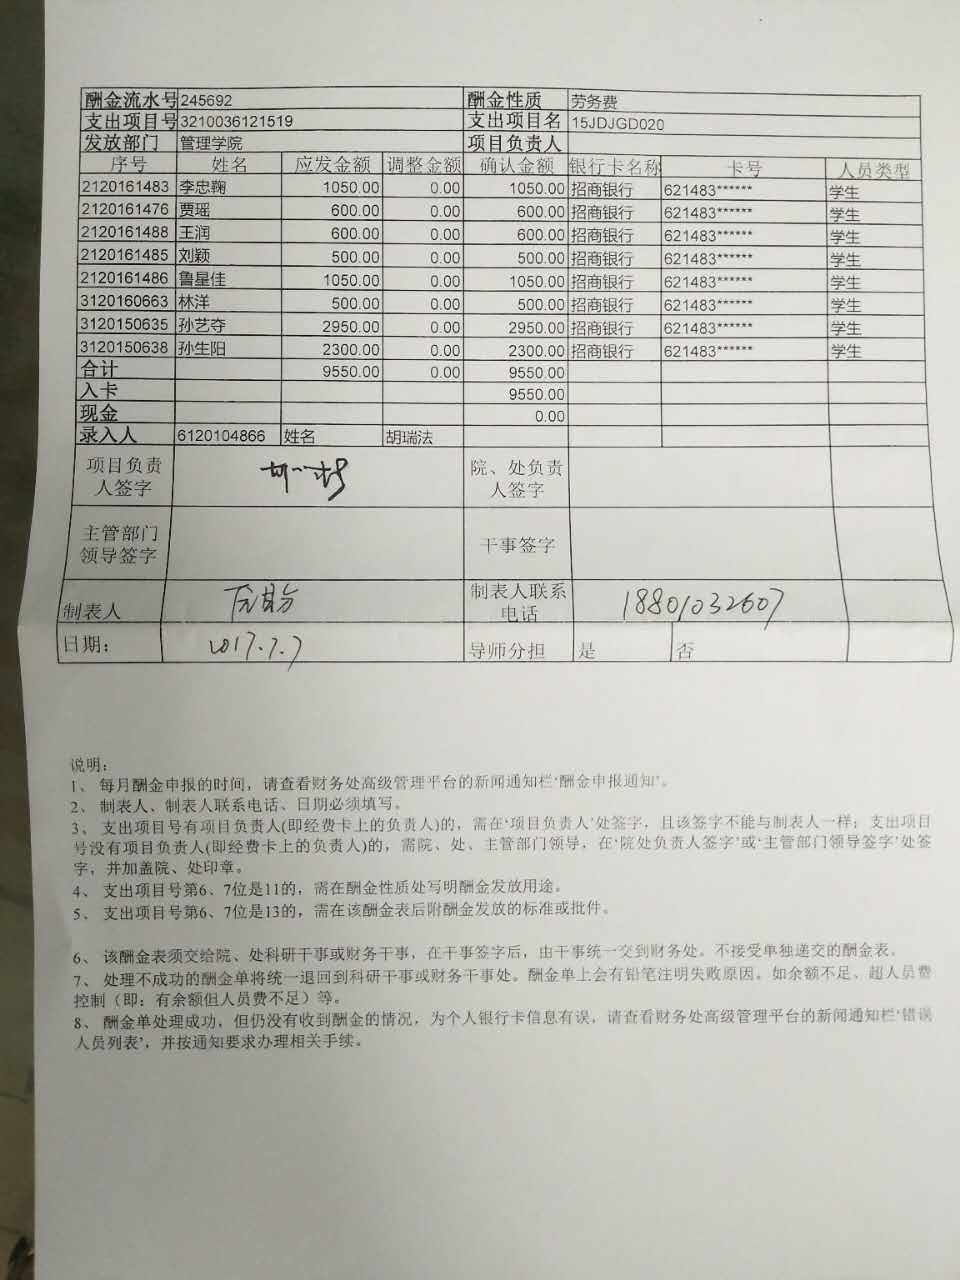 酬金流水号 245692 酬金性质 劳务费
支出项目号 3210036121519 支出项目名 15JDJGD020
发放部门 管理学院 项目负责人
序号 姓名 应发金额 调整金额 确认金额 银行卡名称 卡号 人员类型
2120161483 李忠鞠 1050.00 0.00 1050.00 招商银行 621483****** 学生
2120161476 贾瑶 600.00 0.00 600.00 招商银行 621483****** 学生
2120161488 王润 600.00 0.00 600.00 招商银行 621483****** 学生
2120161485 刘颖 500.00 0.00 500.00 招商银行 621483****** 学生
2120161486 鲁星佳 1050.00 0.00 1050.00 招商银行 621483****** 学生
3120160663 林洋 500.00 0.00 500.00 招商银行 621483****** 学生
3120150635 孙艺夺 2950.00 0.00 2950.00 招商银行 621483****** 学生
3120150638 孙生阳 2300.00 0.00 2300.00 招商银行 621483****** 学生
合计 9550.00 0.00 9550.00
入卡 9550.00
现金 0.00
录入人 6120104866 姓名 胡瑞法
项目负责 院、处负责
人签字 人签字
主管部门
领导签字 干事签字
制表人 制表人联系
电话 18801032607
日期： 2017.7.7 导师分担 是 否
说明：
1、 每月酬金申报的时间，请查看财务处高级管理平台的新闻通知栏‘酬金申报通知’。
2、 制表人、制表人联系电话、日期必须填写。
3、 支出项目号有项目负责人(即经费卡上的负责人)的，需在‘项目负责人’处签字，且该签字不能与制表人一样；支出项目
号没有项目负责人(即经费卡上的负责人)的，需院、处、主管部门领导，在‘院处负责人签字’或‘主管部门领导签字’处签
字，并加盖院、处印章。
4、 支出项目号第6、7位是11的，需在酬金性质处写明酬金发放用途。
5、 支出项目号第6、7位是13的，需在该酬金表后附酬金发放的标准或批件。
6、 该酬金表须交给院、处科研干事或财务干事，在干事签字后，由干事统一交到财务处。不接受单独递交的酬金表。
7、 处理不成功的酬金单将统一退回到科研干事或财务干事处。酬金单上会有铅笔注明失败原因。如余额不足、超人员费
控制（即：有余额但人员费不足）等。
8、 酬金单处理成功，但仍没有收到酬金的情况，为个人银行卡信息有误，请查看财务处高级管理平台的新闻通知栏‘错误
人员列表’，并按通知要求办理相关手续。